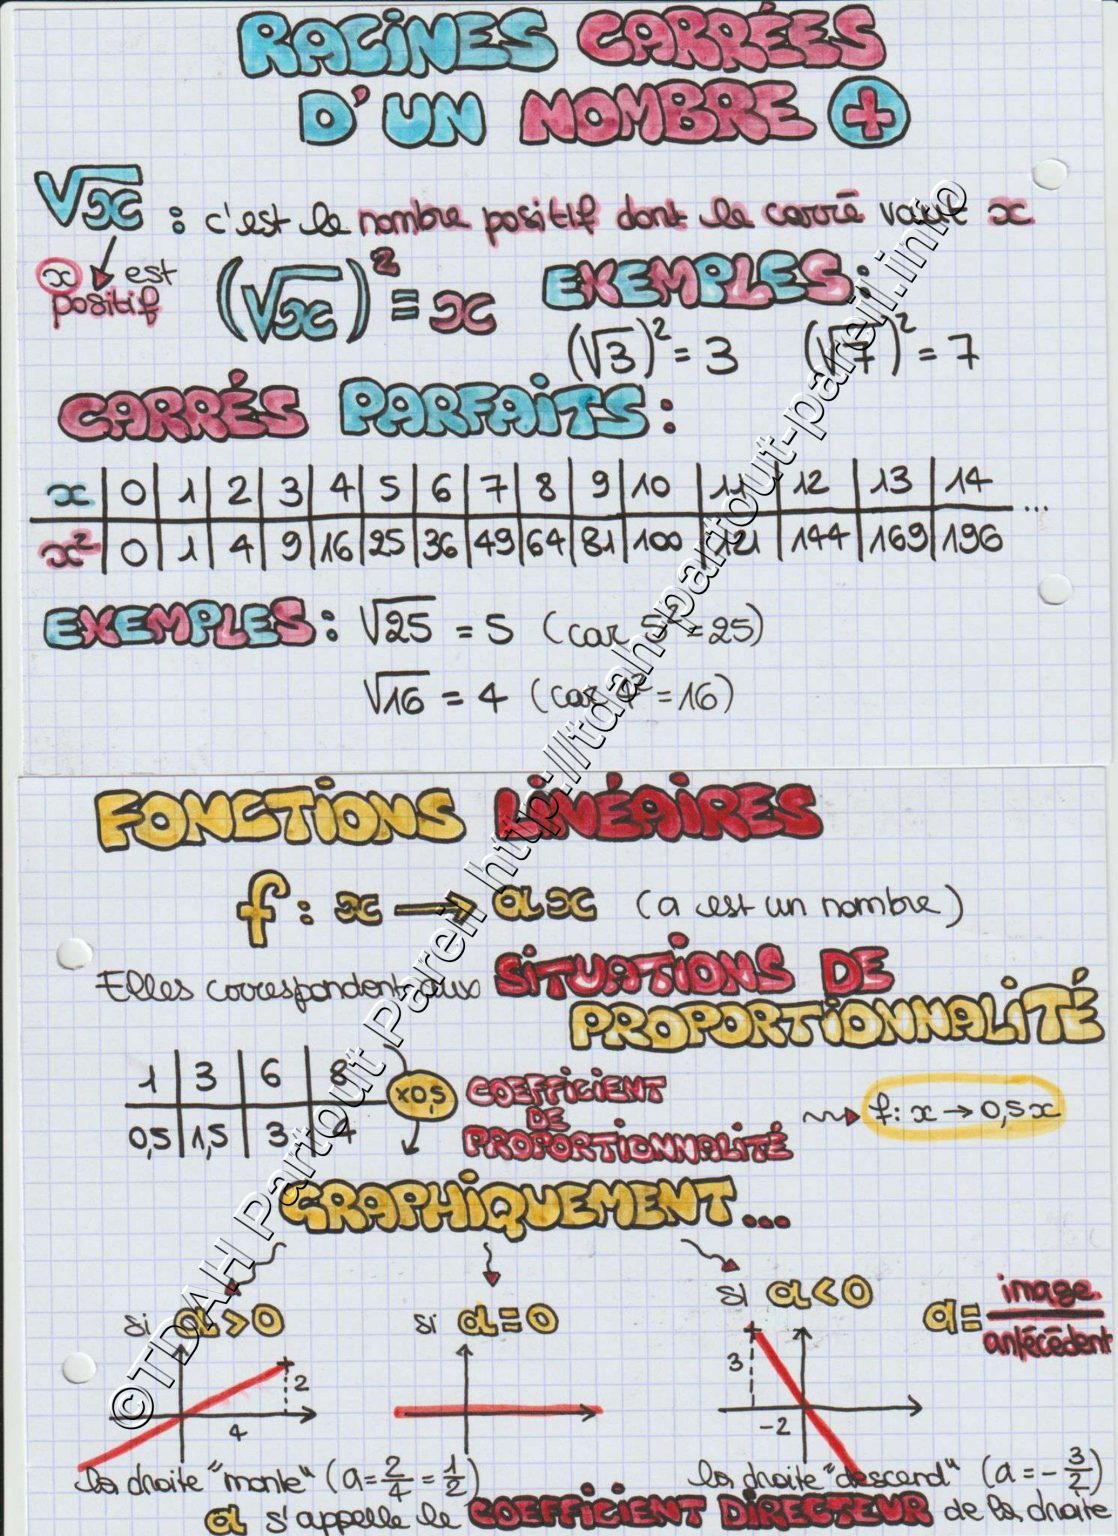 RACINES CARRÉES
D'UN NOMBRE +
√x : c'est le nombre positif dont le carré vaut x
x est
positif
(√x)² = x
EXEMPLES :
(√3)² = 3 (√7)² = 7
CARRÉS PARFAITS :
x 0 1 2 3 4 5 6 7 8 9 10 11 12 13 14 ...
x² 0 1 4 9 16 25 36 49 64 81 100 121 144 169 196
EXEMPLES : √25 = 5 (car 5² = 25)
√16 = 4 (car 4² = 16)
FONCTIONS LINÉAIRES
f : x → ax (a est un nombre)
Elles correspondent aux SITUATIONS DE
PROPORTIONNALITÉ
1 3 6 8
0,5 1,5 3 4
×0,5
COEFFICIENT
DE
PROPORTIONNALITÉ
f : x → 0,5x
GRAPHIQUEMENT...
si a > 0
si a = 0
si a < 0
a = image
antécédent
2
4
3
-2
la droite "monte" (a = 2/4 = 1/2)
la droite "descend" (a = - 3/2)
a s'appelle le COEFFICIENT DIRECTEUR de la droite
©TDAH Partout Pareil http://tdah-partout-pareil.info